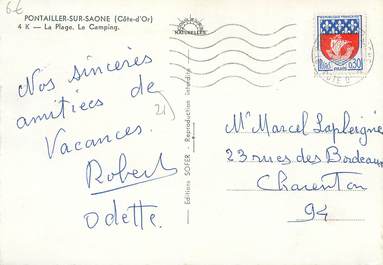 6€
PONTAILLER-SUR-SAONE (Côte-d'Or)
4 K — La Plage. Le Camping.
NATURELLES
REPUBLIQUE FRANÇAISE
0,30
POSTES
Nos sincères
amitiées de
Vacances.
Robert
Odette.
21
Editions SOFER - Reproduction interdite
Mr Marcel Lapleigné
23 rues des Bordeaux
Charenton
94